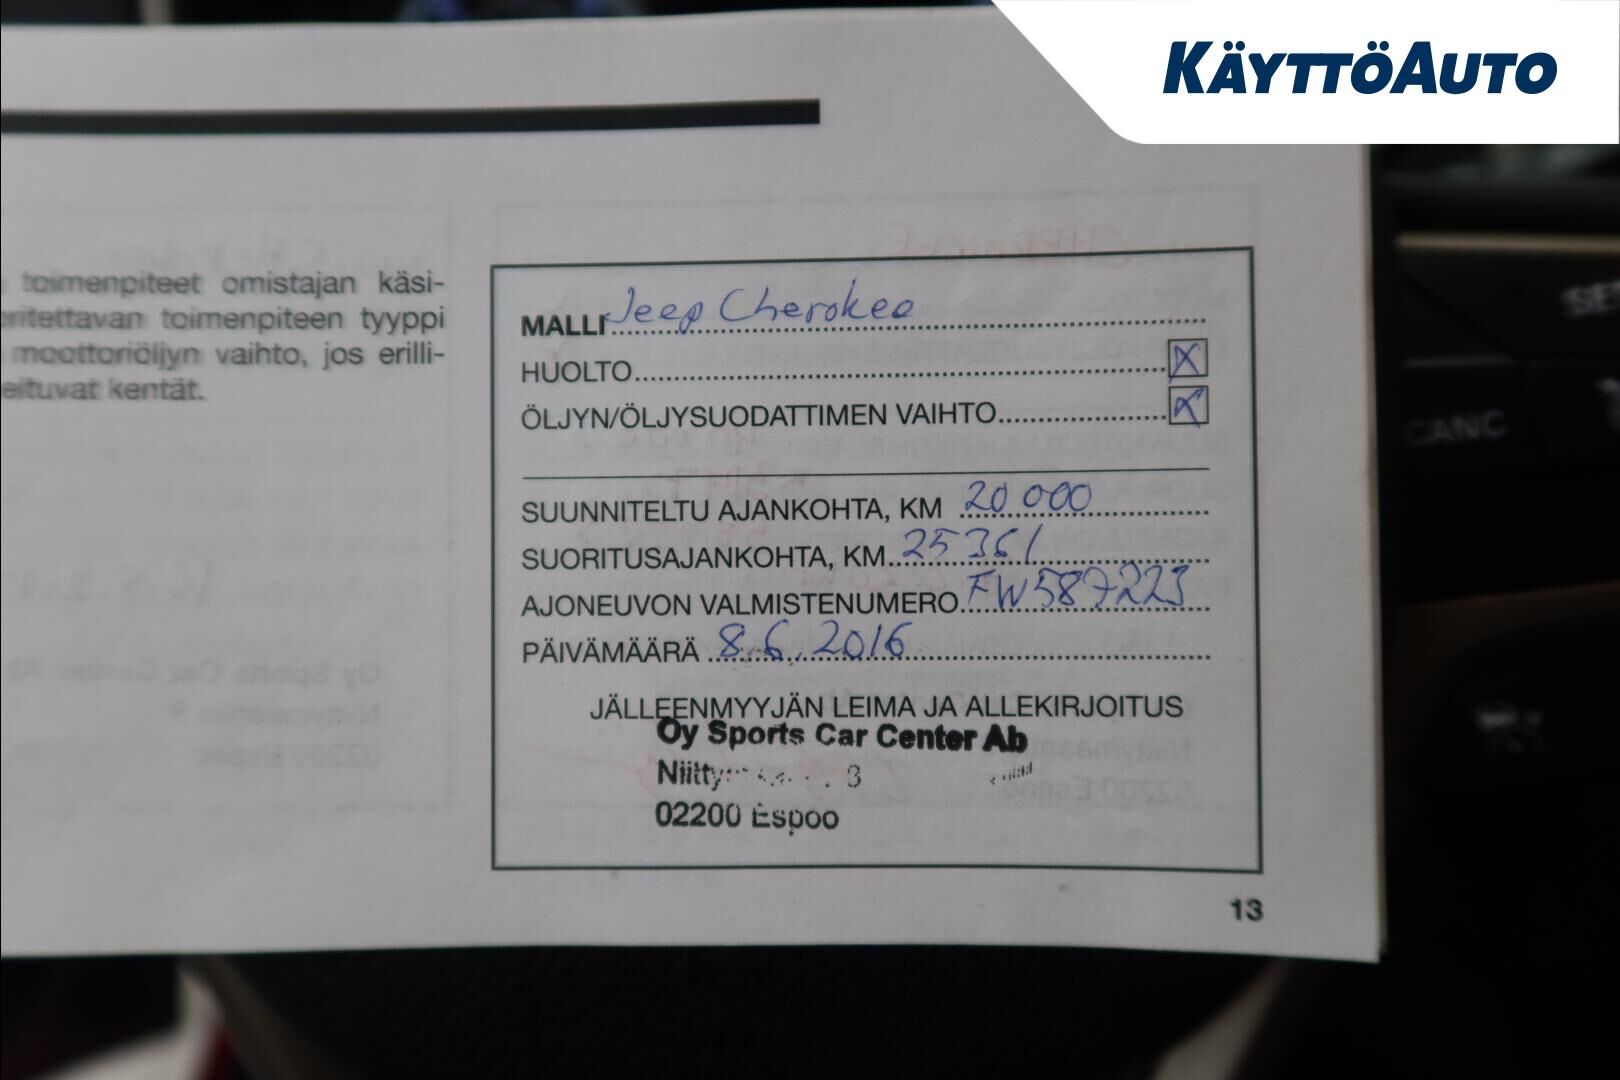 KÄYTTÖAUTO
toimenpiteet omistajan käsi-
ritettavan toimenpiteen tyyppi
moottoriöljyn vaihto, jos erilli-
eltuvat kentät.
MALLI Jeep Cherokee
HUOLTO X
ÖLJYN/ÖLJYSUODATTIMEN VAIHTO X
SUUNNITELTU AJANKOHTA, KM 20 000
SUORITUSAJANKOHTA, KM 25361
AJONEUVON VALMISTENUMERO FW587223
PÄIVÄMÄÄRÄ 8.6.2016
JÄLLEENMYYJÄN LEIMA JA ALLEKIRJOITUS
Oy Sports Car Center Ab
3
02200 Espoo
13
CANC